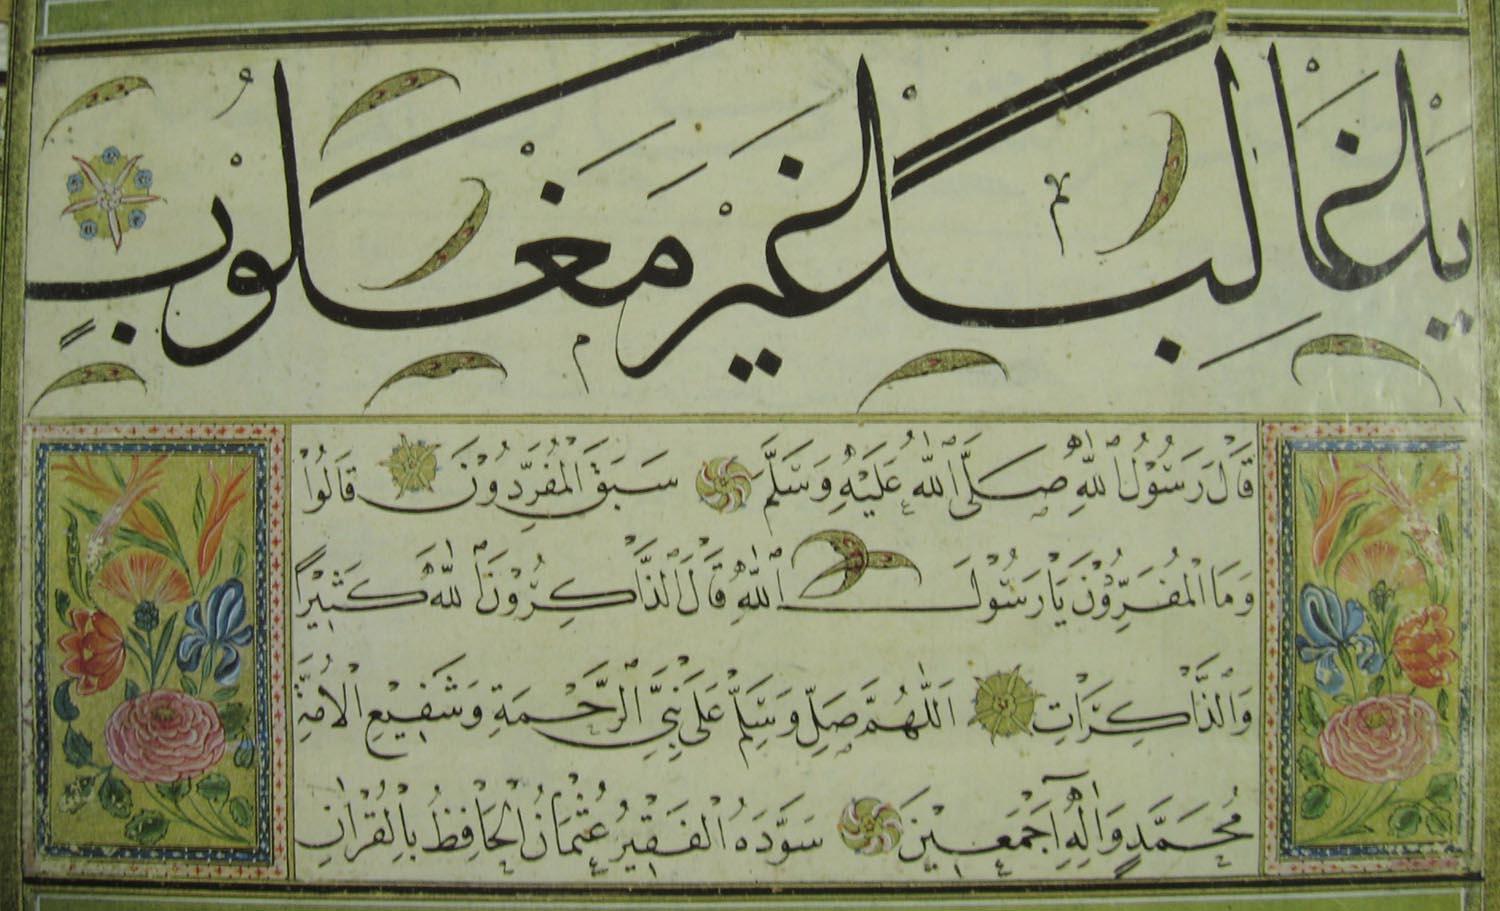 لغير مغلوب
قَالَ رَسُولُ اللهِ صَلَّى اللهُ عَلَيْهِ وَسَلَّمَ سَبَقَ الْمُفَرِّدُونَ قَالُوا
وَمَا الْمُفَرِّدُونَ يَا رَسُولَ اللهِ قَالَ الذَّاكِرُونَ اللهَ كَثِيرًا
وَالذَّاكِرَاتِ اَللّٰهُمَّ صَلِّ وَسَلِّمْ عَلَى نَبِيِّ الرَّحْمَةِ وَشَفِيعِ الْاُمَّةِ
مُحَمَّدٍ وَاٰلِهِ اَجْمَعِينَ سَوَّدَهُ الْفَقِيرُ عُثْمَانُ الْحَافِظُ بِالْقُرْاٰنِ